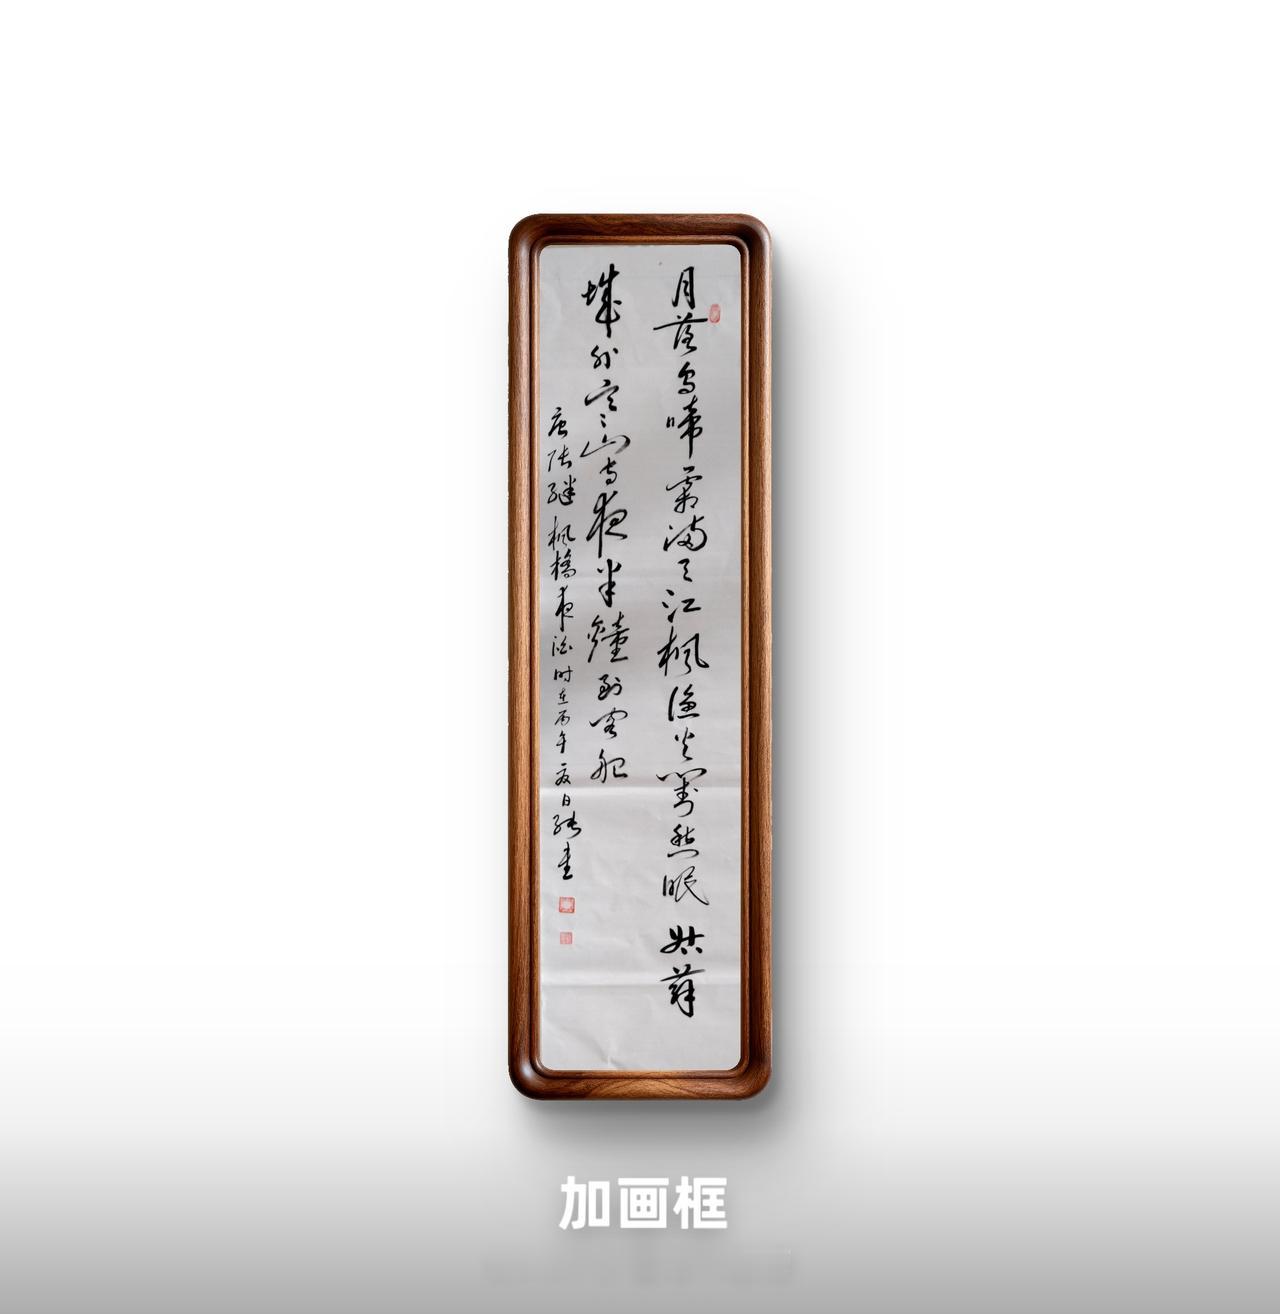 月落乌啼霜满天江枫渔火对愁眠姑苏
城外寒山寺夜半钟到客船
唐张继枫桥夜泊时在丙午夏日
加画框